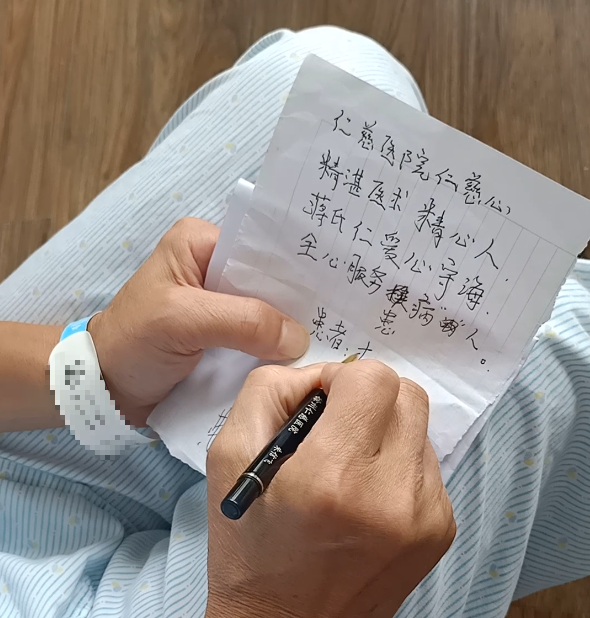 仁慈医院仁慈心,
精湛医术精心人.
蒋氏仁爱心守海.
全心服务病人。
患
患者: